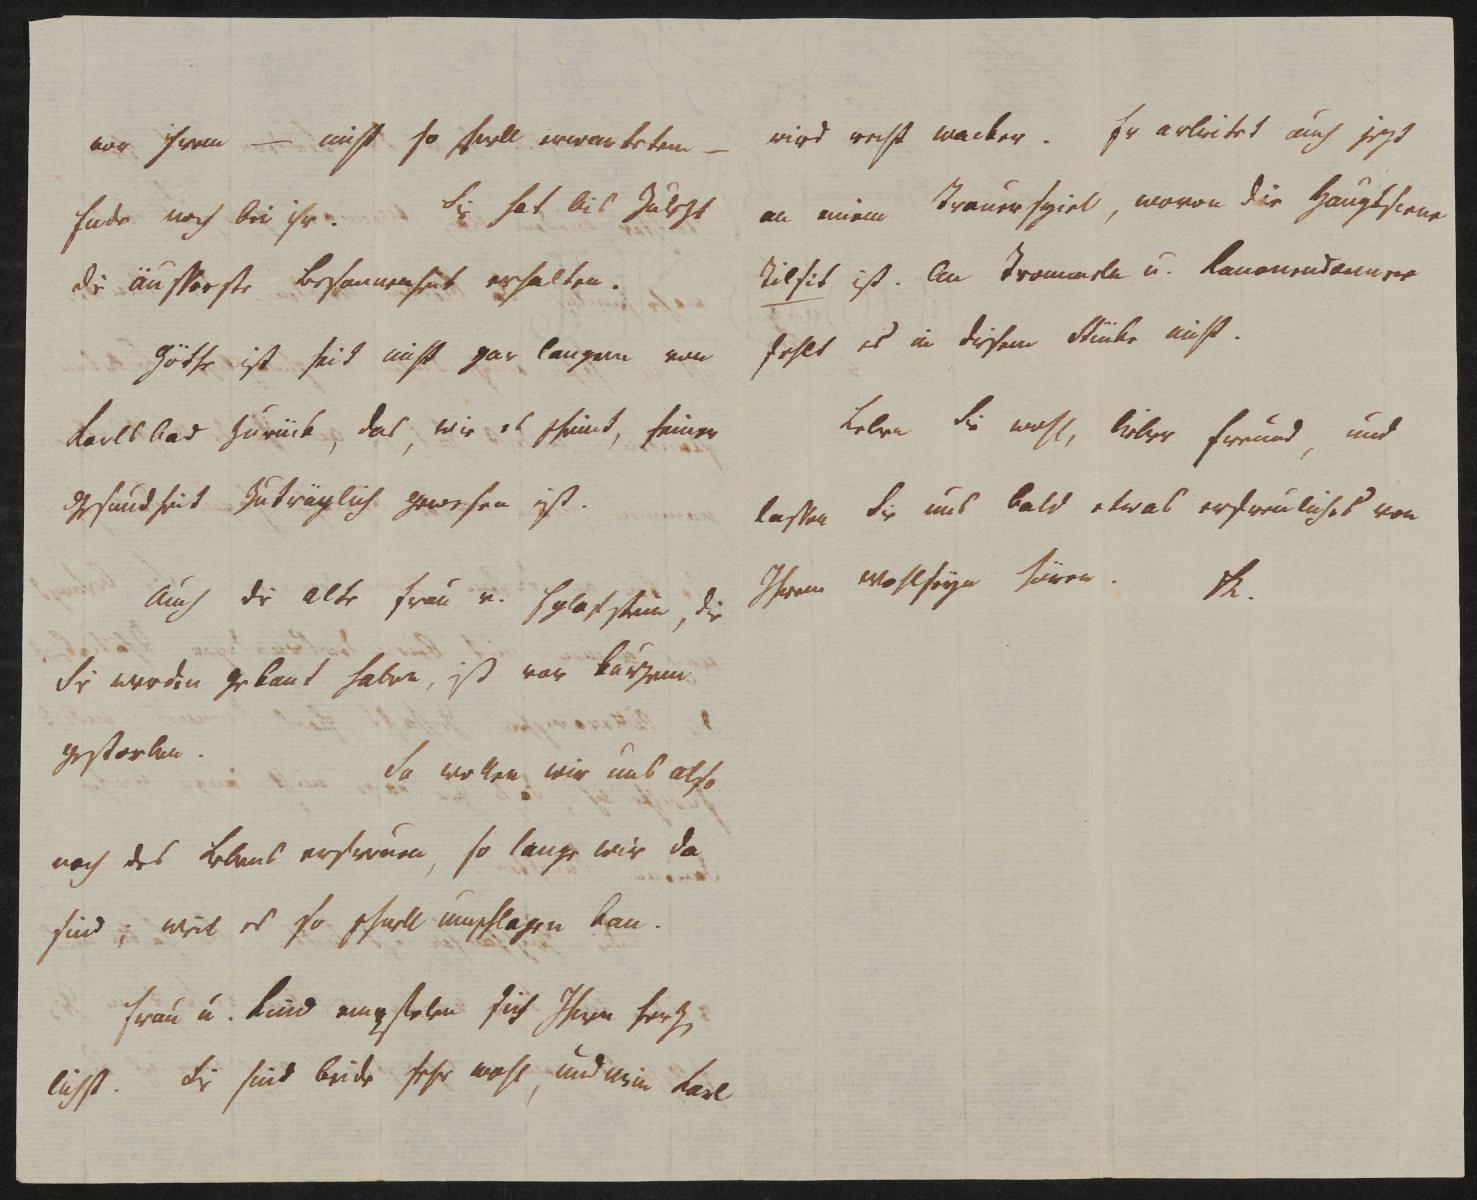 vor ihrem — nicht so schnell erwartetem —
Ende noch bei ihr. Sie hat bis zulezt
die äusserste Besonnenheit erhalten.
Göthe ist seit nicht gar langem von
Karlsbad zurück, das, wie es scheint, seiner
Gesundheit zuträglich gewesen ist.
Auch die alte Frau v. , die
Sie werden gekant haben, ist vor kurzem
gestorben. So wollen wir uns also
noch des Lebens erfreuen, so lange wir da
sind; weil es so schnell umschlagen kan.
Frau u. Kind empfelen sich Ihnen herz¬
lichst. Sie sind beide sehr wohl, und mein Karl
wird recht wacker. Er arbeitet auch jezt
an einem Trauerspiel, wovon die Hauptscene
Tilsit ist. An Trommeln u. Kanonendonner
fehlt es in diesem Stücke nicht.
Leben Sie wohl, lieber Freund, und
lassen Sie uns bald etwas erfreuliches von
Ihrem Wohlseyn hören. K.